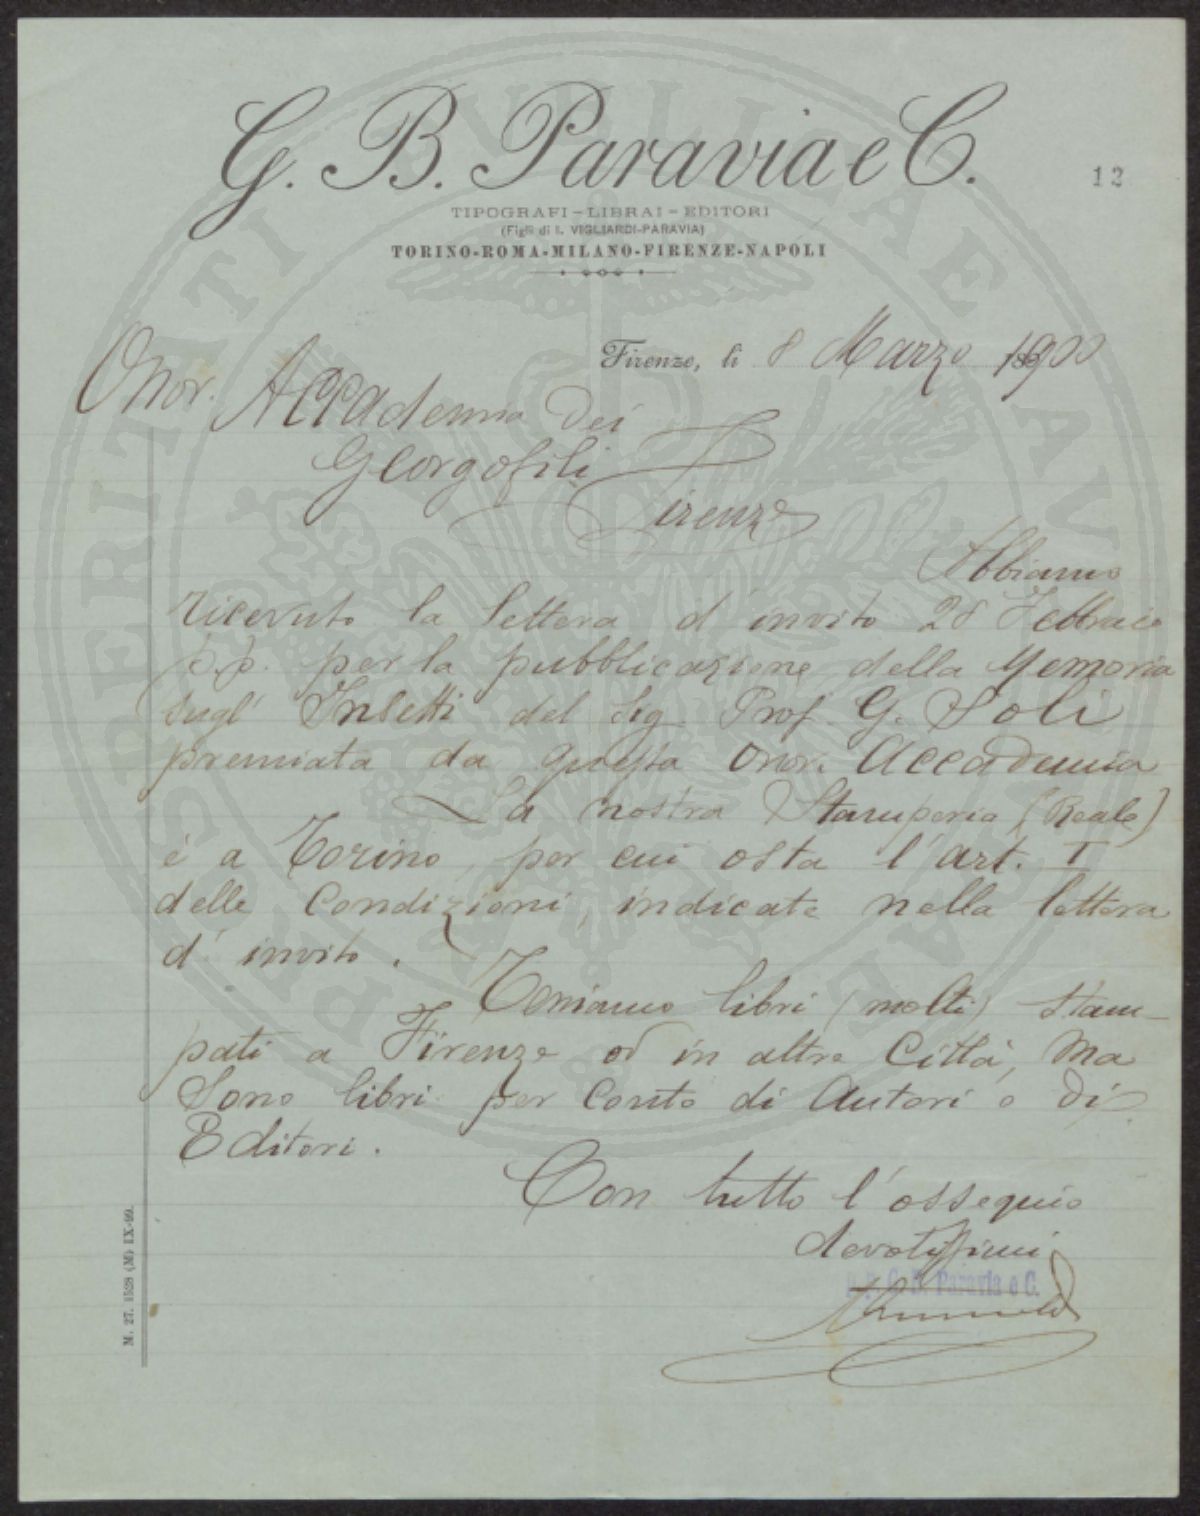 G. B. Paravia e C.
12
TIPOGRAFI - LIBRAI - EDITORI
(Figli di I. VIGLIARDI-PARAVIA)
TORINO-ROMA-MILANO-FIRENZE-NAPOLI
Firenze, li 8 Marzo 1900
Onor. Accademia dei
Georgofili
Firenze
Abbiamo
ricevuto la lettera d'invito 28 Febbraio
p.p. per la pubblicazione della Memoria
sugl' Insetti del Sig. Prof. G. Soli
premiata da questa Onor. Accademia
La nostra Stamperia (Reale)
è a Torino, per cui osta l'art. I
delle Condizioni, indicate nella lettera
d'invito.
Teniamo libri (molti) stam-
pati a Firenze od in altre Città, ma
sono libri per conto di Autori o di
Editori.
Con tutto l'ossequio
devotissimi
G. B. Paravia e C.
M. 27. 1528 (M) IX-99.
PROSPERITATI PUBLICAE AUGENDAE